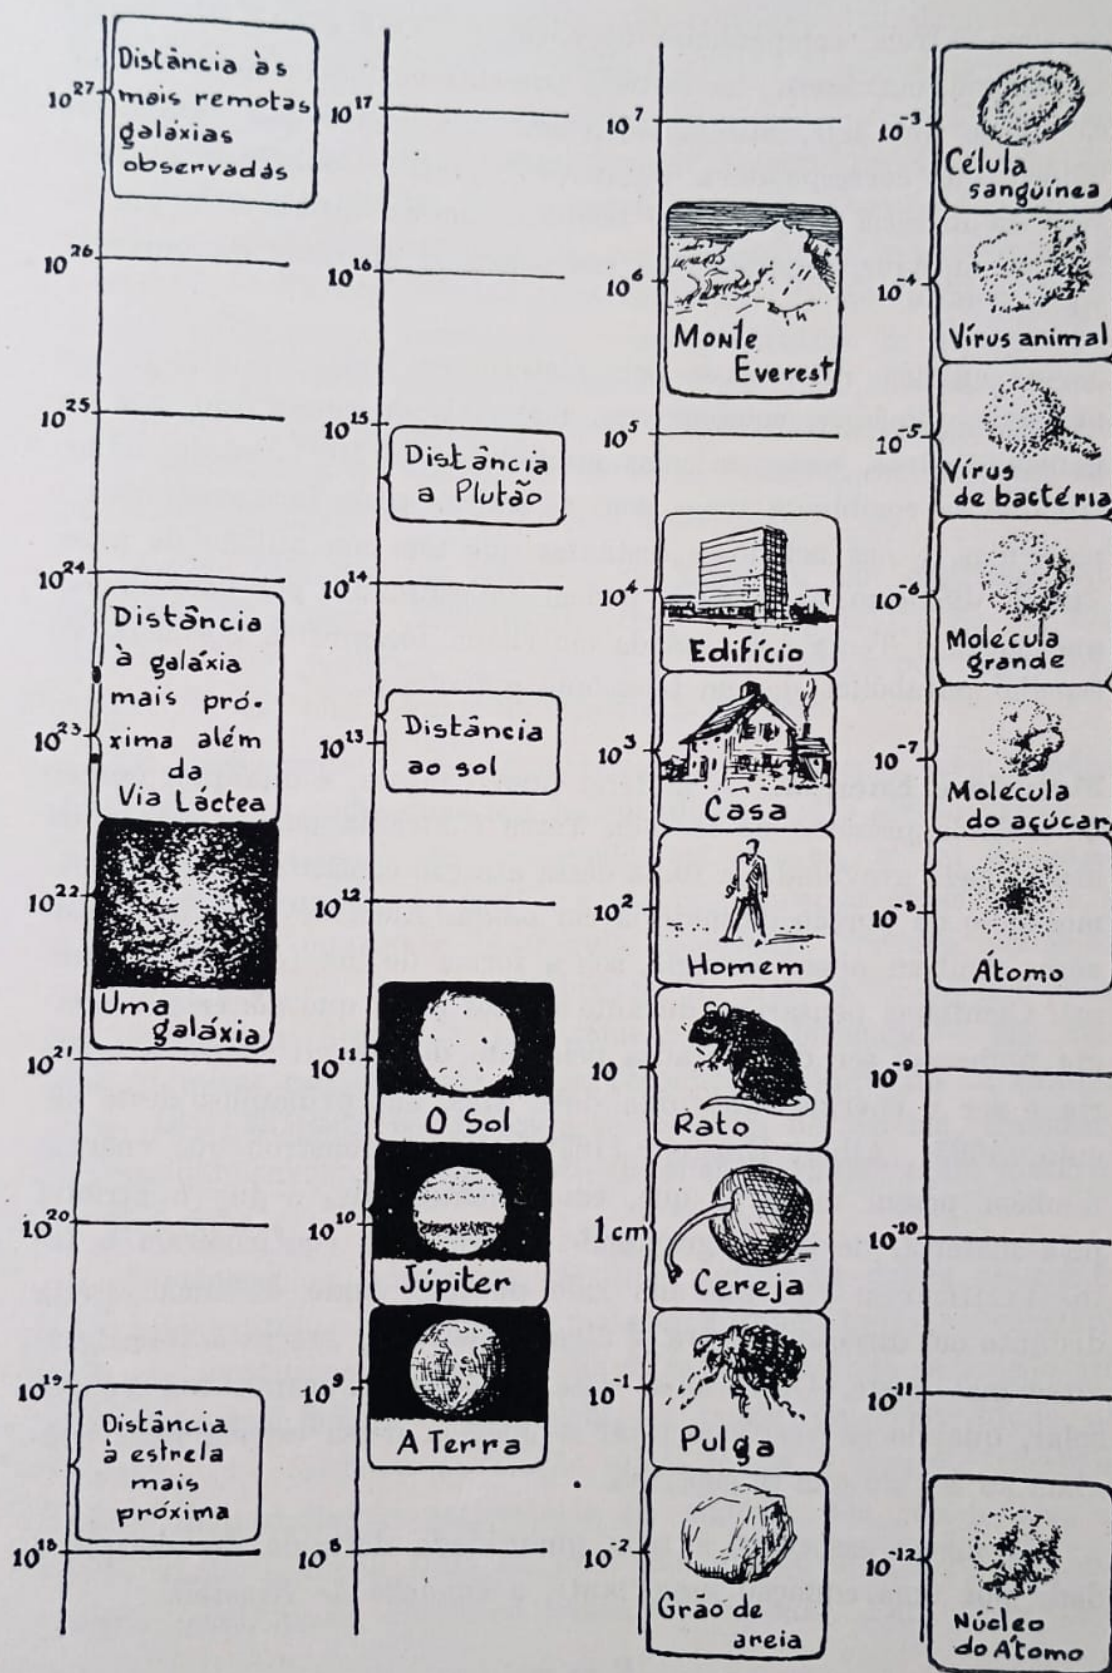 10²⁷
Distância às
mais remotas
galáxias
observadas
10²⁶
10²⁵
10²⁴
Distância
à galáxia
mais pró-
xima além
da
Via Láctea
10²³
10²²
Uma
galáxia
10²¹
10²⁰
10¹⁹
Distância
à estrela
mais
próxima
10¹⁸
10¹⁷
10¹⁶
10¹⁵
Distância
a Plutão
10¹⁴
Distância
ao sol
10¹³
10¹²
10¹¹
O Sol
10¹⁰
Júpiter
10⁹
A Terra
10⁸
10⁷
10⁶
Monte
Everest
10⁵
10⁴
Edifício
10³
Casa
10²
Homem
10
Rato
1 cm
Cereja
10⁻¹
Pulga
10⁻²
Grão de
areia
10⁻³
Célula
sangüínea
10⁻⁴
Vírus animal
10⁻⁵
Vírus
de bactéria
10⁻⁶
Molécula
grande
10⁻⁷
Molécula
do açúcar
10⁻⁸
Átomo
10⁻⁹
10⁻¹⁰
10⁻¹¹
10⁻¹²
Núcleo
do Átomo